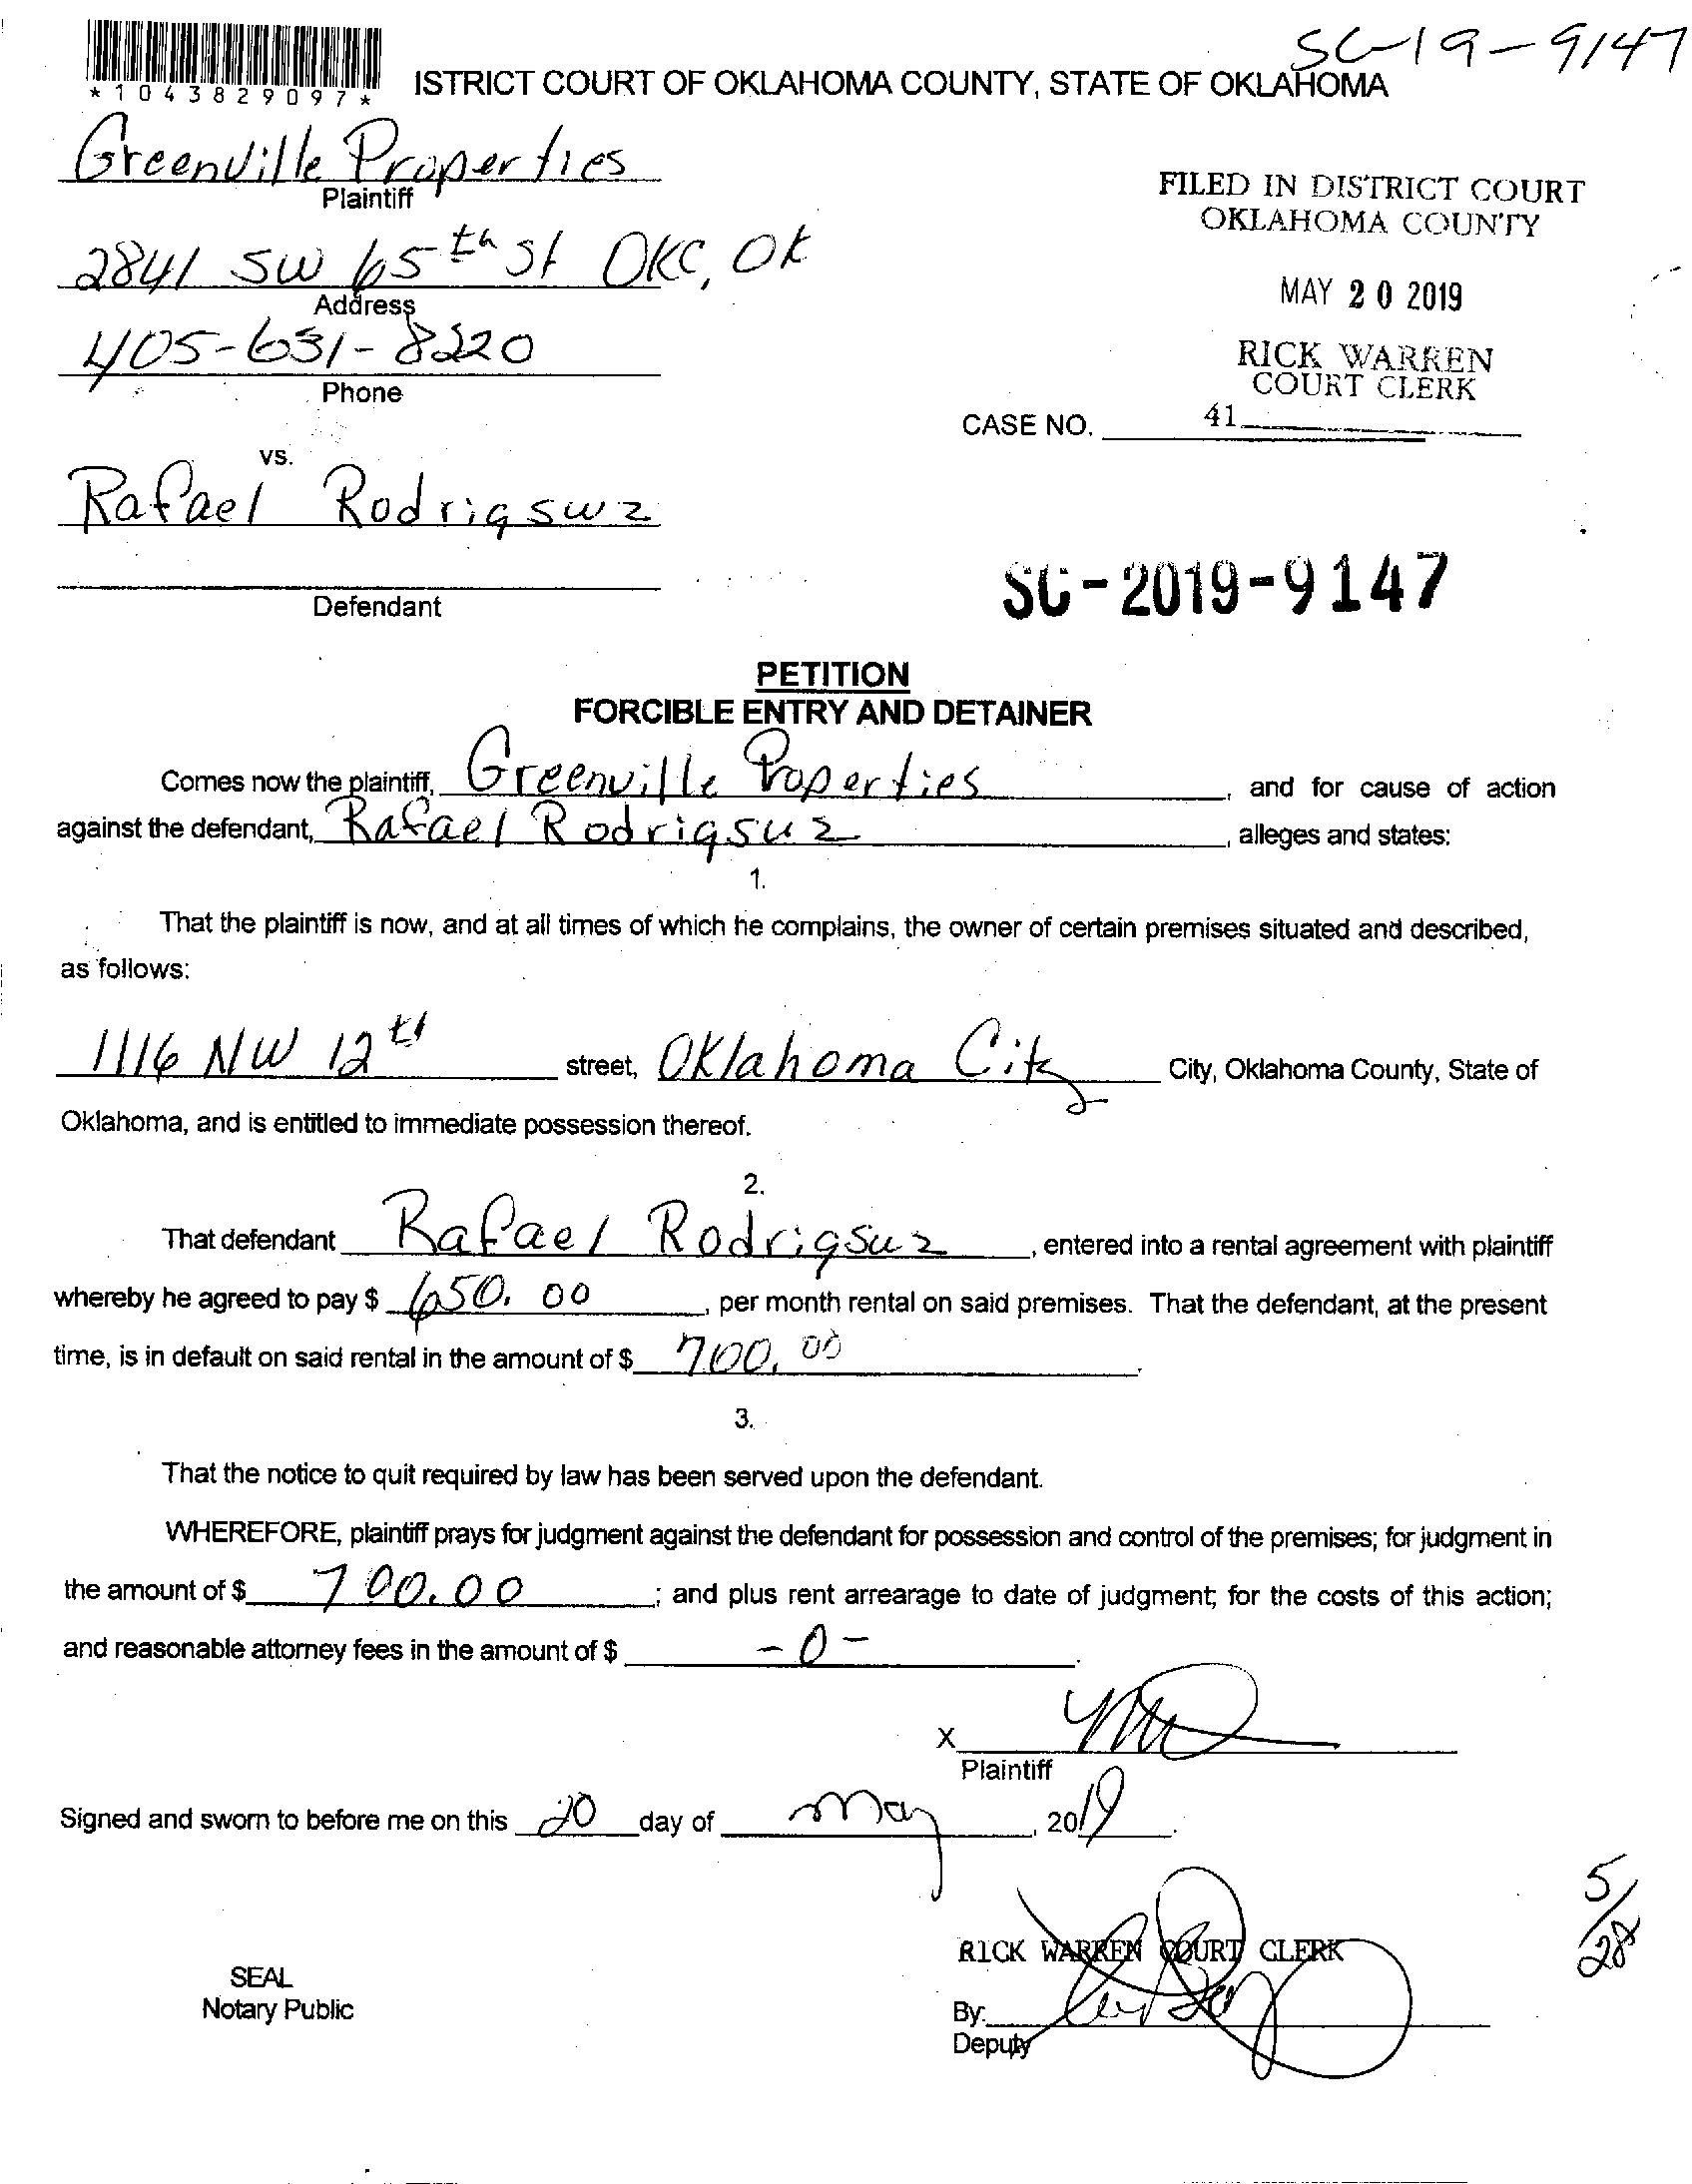 SC-19-9147
*1043829097*
ISTRICT COURT OF OKLAHOMA COUNTY, STATE OF OKLAHOMA
Greenville Properties
Plaintiff
FILED IN DISTRICT COURT
OKLAHOMA COUNTY
2841 SW 65th St OKC, OK
Address
MAY 20 2019
405-631-8220
Phone
RICK WARREN
COURT CLERK
CASE NO. 41
vs.
Rafael Rodrigsuz
Defendant
SC-2019-9147
PETITION
FORCIBLE ENTRY AND DETAINER
Comes now the plaintiff, Greenville Properties, and for cause of action
against the defendant, Rafael Rodrigsuz, alleges and states:
1.
That the plaintiff is now, and at all times of which he complains, the owner of certain premises situated and described,
as follows:
1116 NW 12th street, Oklahoma City City, Oklahoma County, State of
Oklahoma, and is entitled to immediate possession thereof.
2.
That defendant Rafael Rodrigsuz, entered into a rental agreement with plaintiff
whereby he agreed to pay $ 650.00, per month rental on said premises. That the defendant, at the present
time, is in default on said rental in the amount of $ 700.00.
3.
That the notice to quit required by law has been served upon the defendant.
WHEREFORE, plaintiff prays for judgment against the defendant for possession and control of the premises; for judgment in
the amount of $ 700.00; and plus rent arrearage to date of judgment; for the costs of this action;
and reasonable attorney fees in the amount of $ -0-.
X
Plaintiff
Signed and sworn to before me on this 20 day of May, 2019.
5/28
RICK WARREN COURT CLERK
SEAL
Notary Public
By:
Deputy